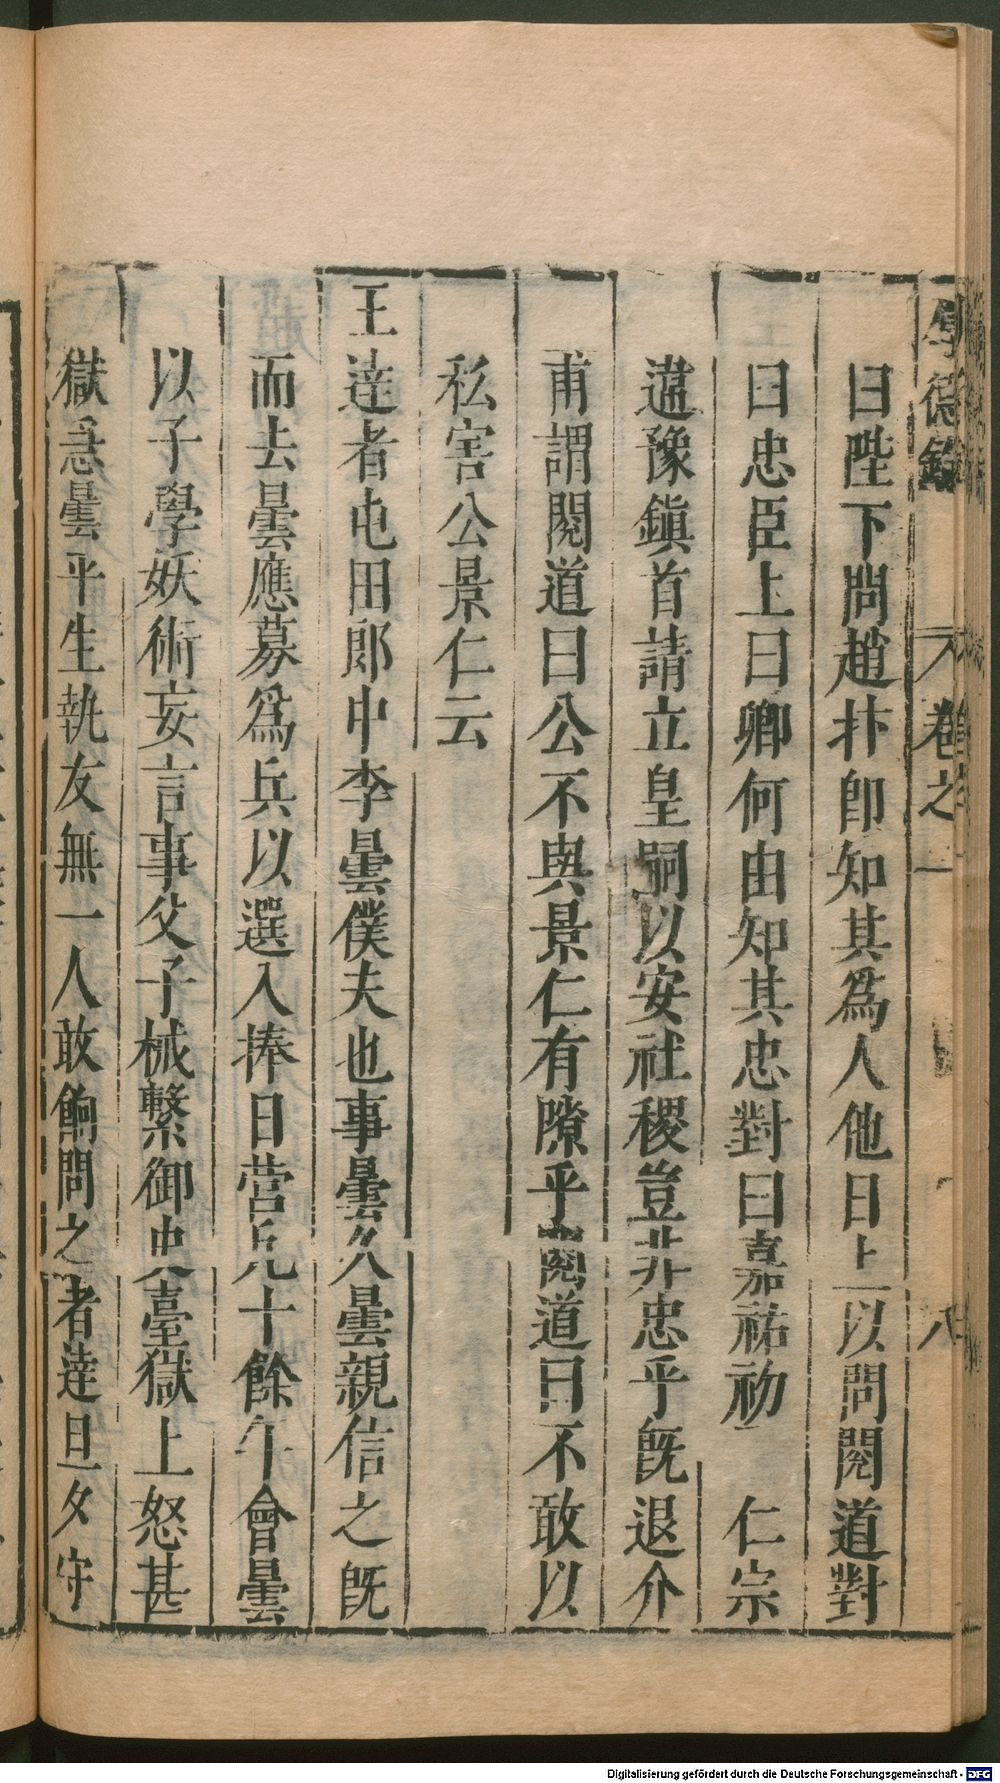 厚德錄 卷之一 八
曰陛下問趙抃卽知其爲人他日上以問閱道對
曰忠臣上曰卿何由知其忠對曰嘉祐初 仁宗
違豫鎭首請立皇嗣以安社稷豈非忠乎旣退介
甫謂閱道曰公不與景仁有隙乎閱道曰不敢以
私害公景仁云
王逹者屯田郎中李曇僕夫也事曇久曇親信之旣
而去曇應募爲兵以選入捧日營凡十餘年會曇
以子學妖術妄言事父子械繫御史臺獄上怒甚
獄急曇平生執友無一人敢餉問之者逹旦夕守
Digitalisierung gefördert durch die Deutsche Forschungsgemeinschaft - DFG